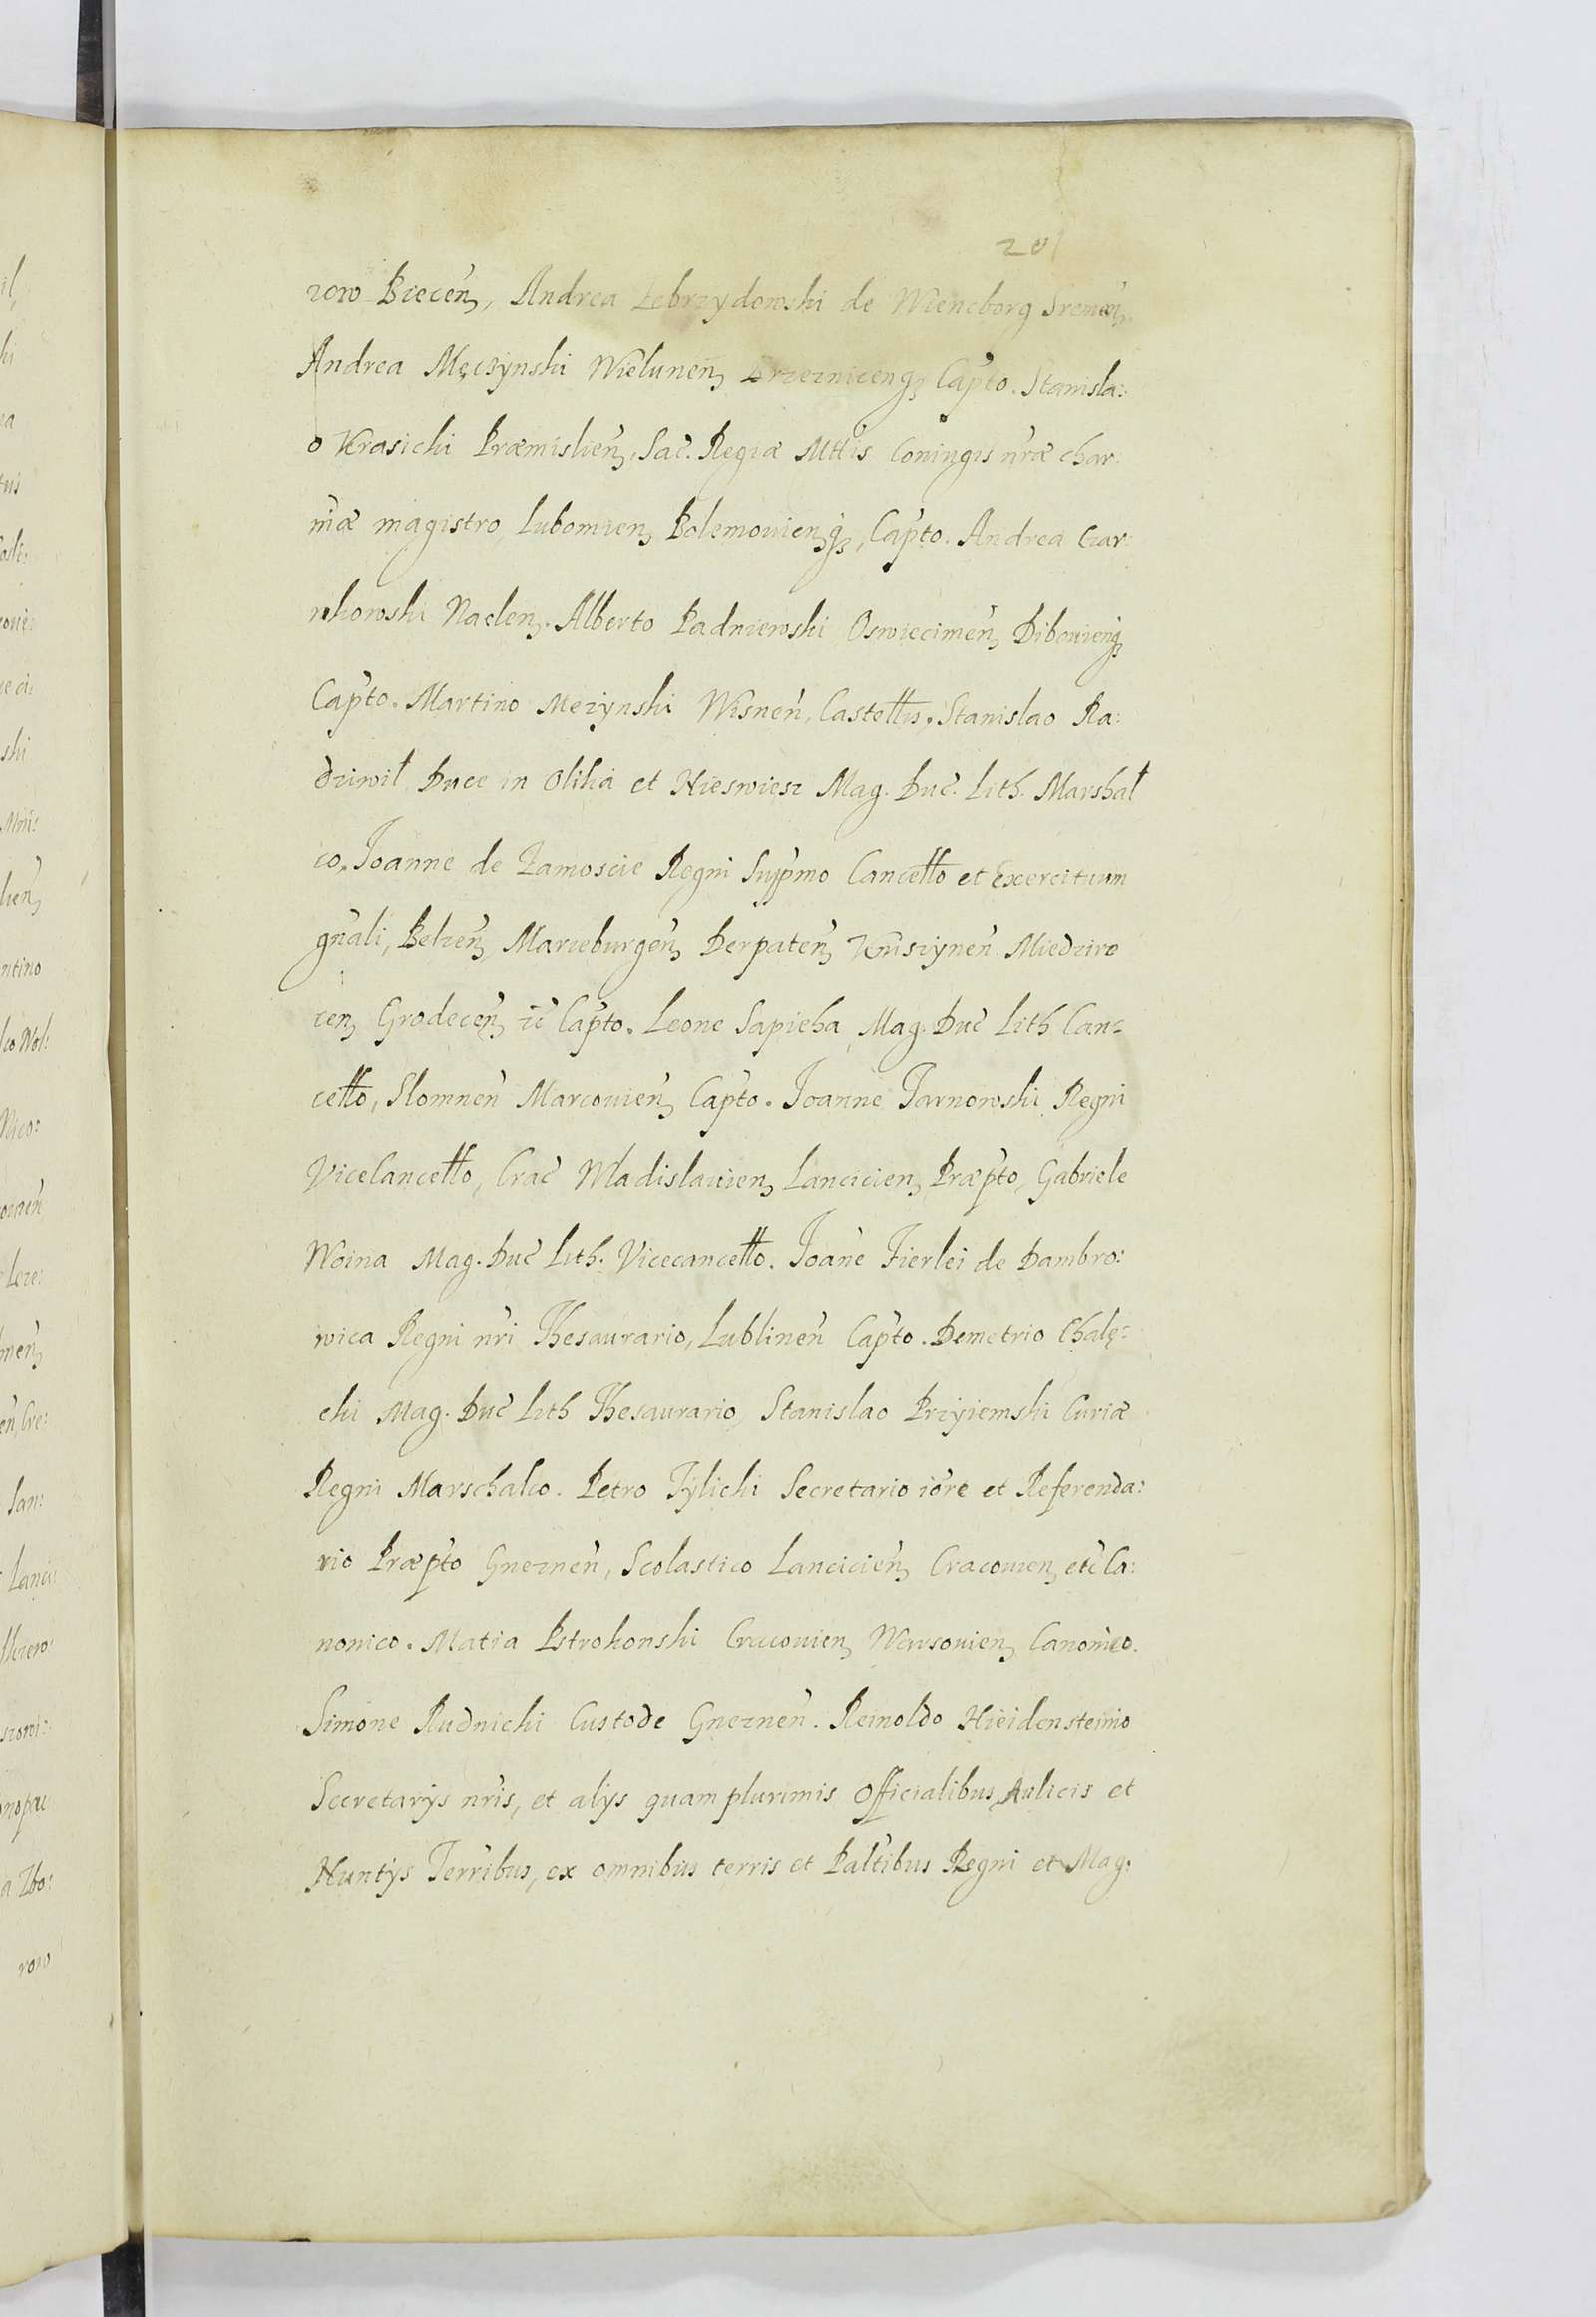 201
row Biecen̄, Andrea Zebrzydowski de Wiencborg Sremen̄.
Andrea Męczÿnski Wielunen̄, Brzeznicenq₃ Capto. Stanisla:
o Krasicki Præmislien̄, Sac. Regiæ Mttis Coniugis nræ char:
mæ magistro, Lubomlen, Bolemouienq₃, Capto. Andrea Czar:
nkowski Naclen, Alberto Padniewski Oswiecimen̄, Dibouienq₃
Capto. Martino Mezynski Wisnen̄, Castellis, Stanislao Ra:
dziwił Duce in Olika et Nieswiesz Mag. Duc. Lith. Marshał
co, Joanne de Zamoscie Regni Supmo Cancello et Exercituum
gn̄ali, Belzen̄, Marieburgen̄, Derpaten̄, Kniszynen̄. Miedziro
cen, Grodecen̄, ꝛc Capto. Leone Sapieha Mag. Duc Lith Can=
cello, Slomnen̄ Marcouien̄, Capto. Joanne Tarnowski Regni
ViceCancello, Crac Wladislauien, Lancicien, Præpto, Gabriele
Woina Mag. Duc Lith. Vicecancello. Joan̄e Fierlei de Dambro:
wica Regni nri Thesaurario, Lublinen̄ Capto. Demetrio Chalę=
cki Mag. Duc Lith Thesaurario, Stanislao Przÿiemski Curiæ
Regni Marschalco. Petro Tÿlicki Secretario iore et Referenda:
rio Præpto Gneznen̄, Scolastico Lancicien̄, Cracouien, etc Ca:
nonico. Matia Pstrokonski Cracouien, Warsouien, Canonico.
Simone Rudnicki Custode Gneznen̄. Reinoldo Hieidensteinio
Secretarÿs nris, et alÿs quam plurimis Officialibus, Aulicis et
Nuntÿs Terribus, ex omnibus terris et Paltibus Regni et Mag: